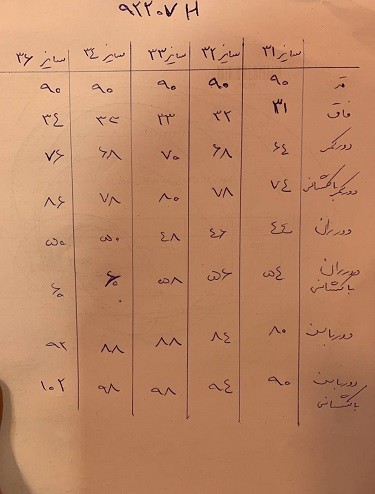 ۹۲۲۰۷ H
سایز ۳۱ سایز ۳۲ سایز ۳۳ سایز ۳۴ سایز ۳۶
قد ۹۰ ۹۰ ۹۰ ۹۰ ۹۰
فاق ۳۱ ۳۲ ۳۳ ۳۴
دور کمر ۶۴ ۶۸ ۷۰ ۶۸ ۷۶
دور کمر با کشسانی ۷۴ ۷۸ ۸۰ ۷۸ ۸۶
دور ران ۴۴ ۴۶ ۴۸ ۵۰ ۵۰
دور ران ۵۴ ۵۶ ۵۸ ۶۰ ۶۰
با کشسانی
دور باسن ۸۰ ۸۴ ۸۸ ۸۸ ۹۲
دور باسن ۹۰ ۹۴ ۹۸ ۹۸ ۱۰۲
با کشسانی